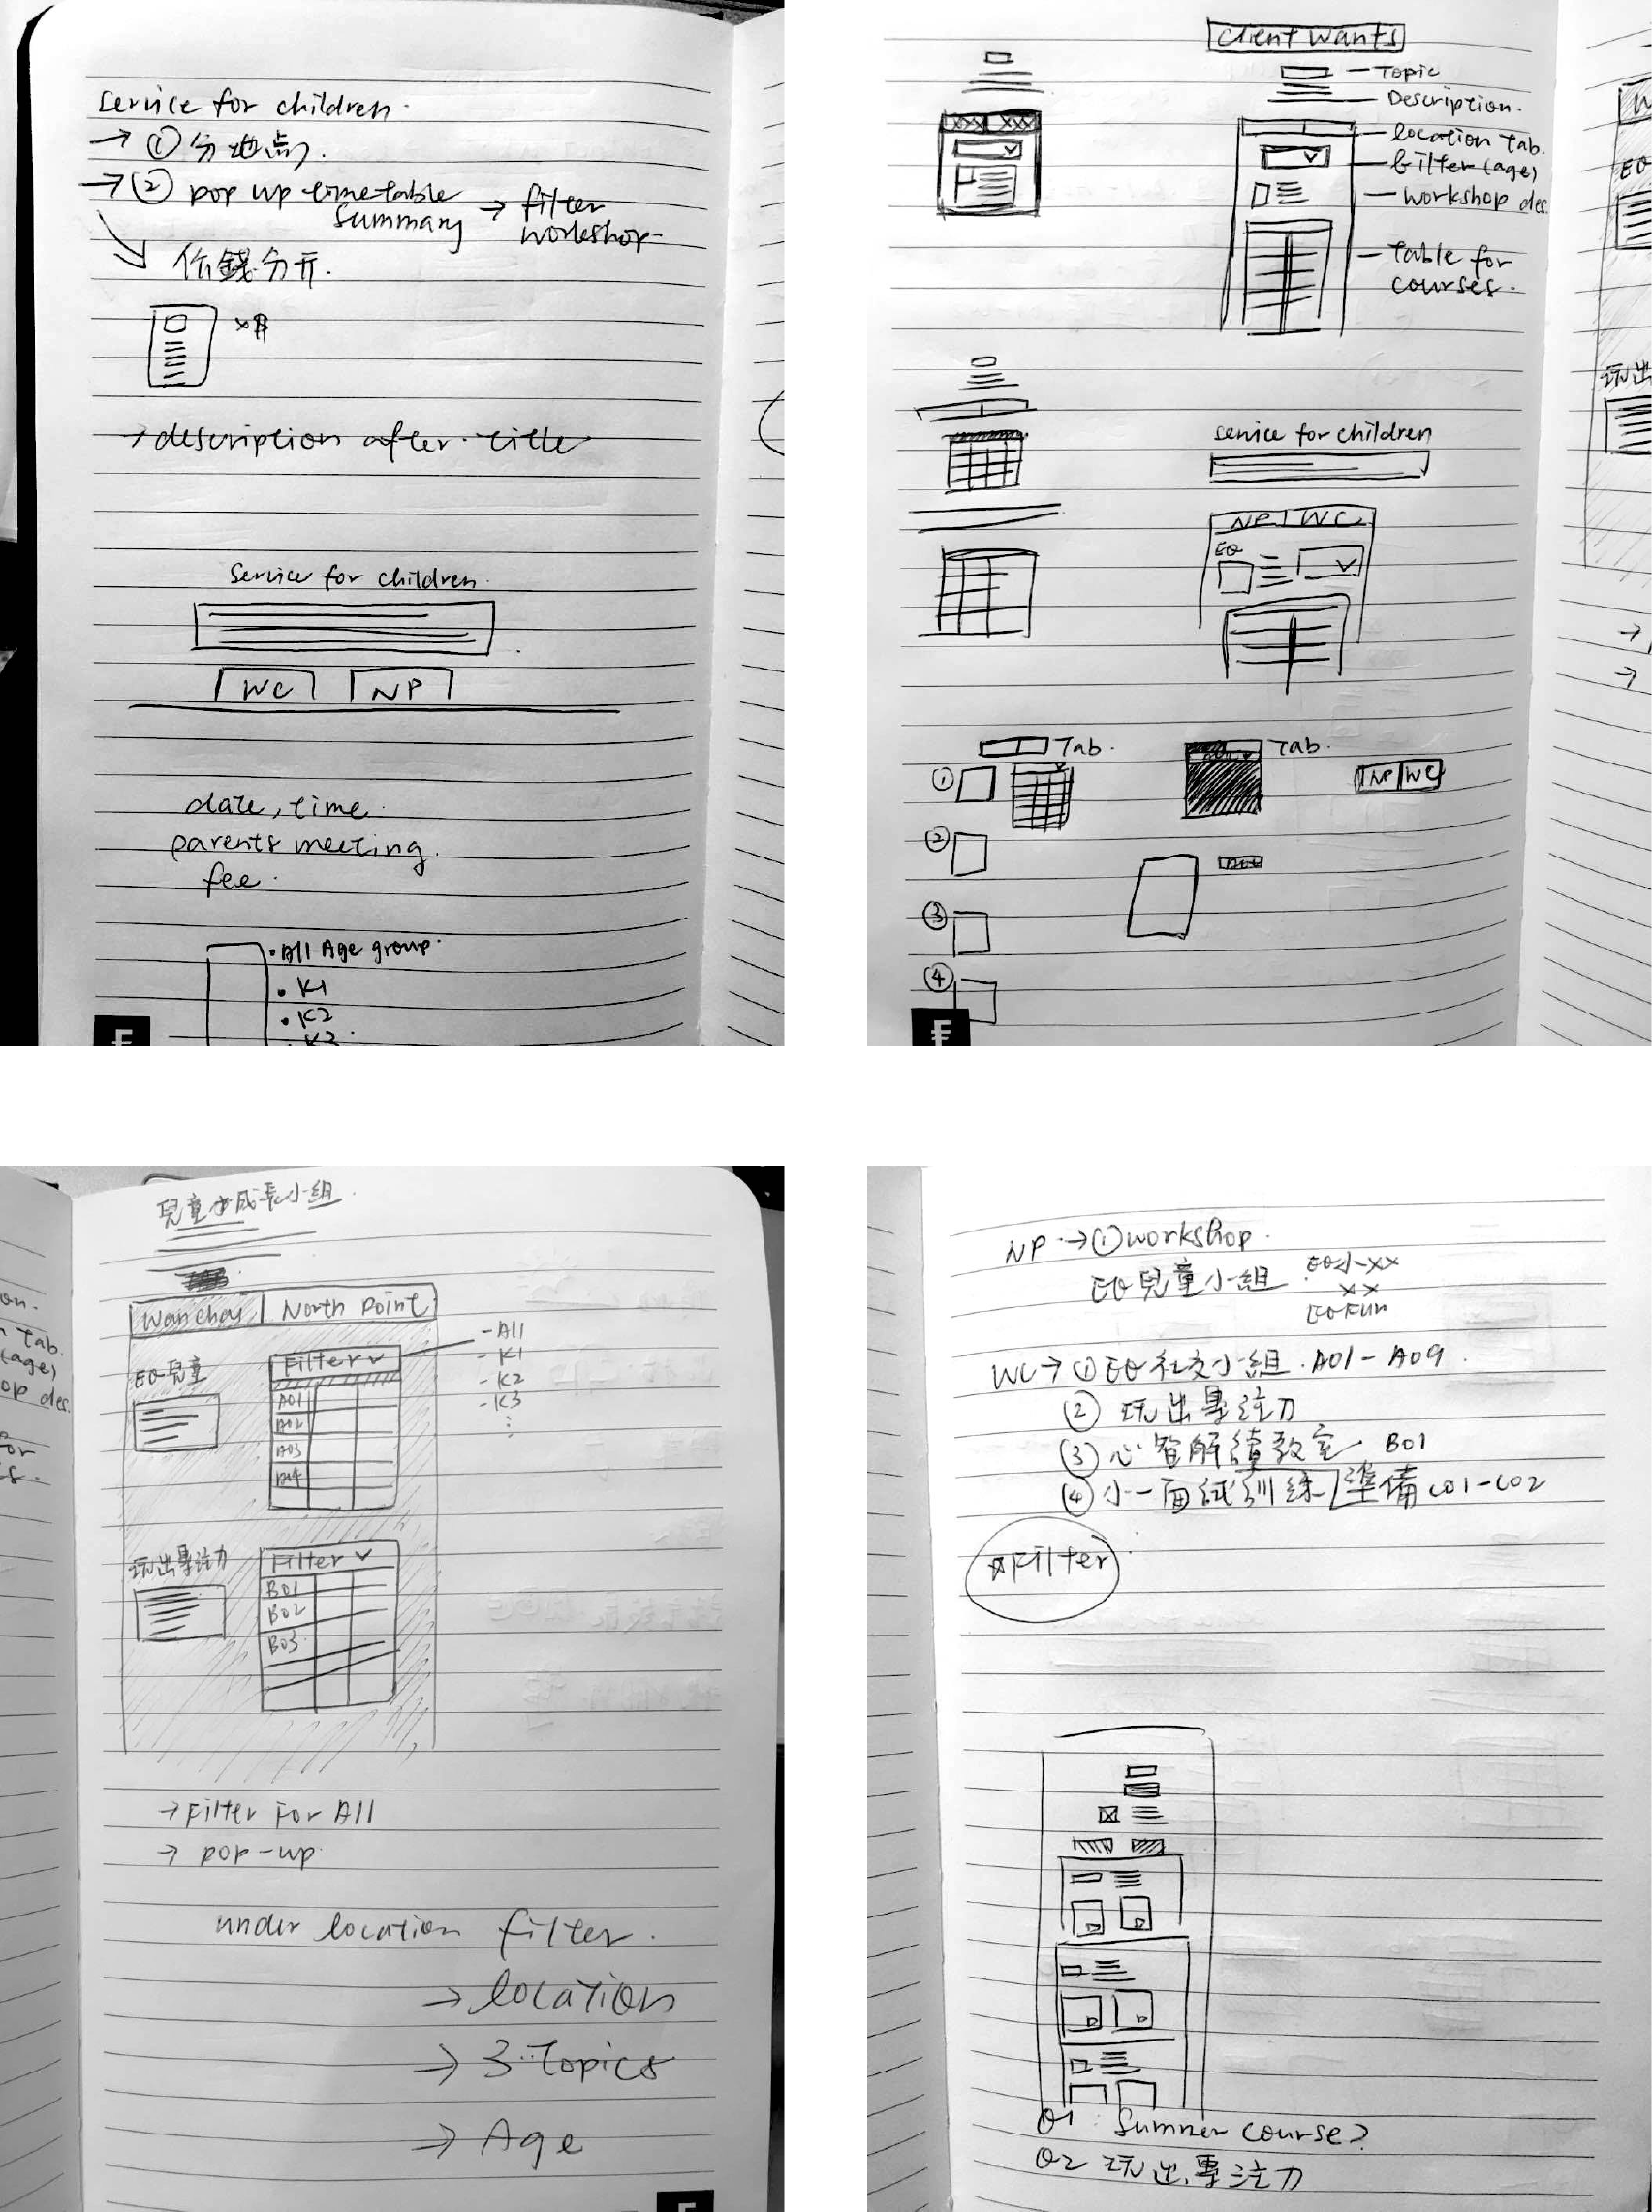 Service for children.
→ ① 分地点.
→ ② pop up timetable
summary → filter
workshop-
价錢分开.
→ description after title
Service for children.
WC NP
date, time.
parents meeting.
fee.
• All Age group.
• K1
• K2
• K3
Client Wants
Topic
Description.
location Tab.
filter (age)
workshop des.
Table for
courses.
Service for children
NP | WC
EQ
Tab.
Tab.
NP | WC
①
②
③
④
EQ
玩出
→
→
on.
n Tab.
(age)
op des.
for
s.
Wanchai | North Point
- All
- K1
- K2
- K3
EQ兒童
Filter
A01
A02
A03
A04
玩出專注力
Filter
B01
B02
B03
→ Filter For All
→ pop-up
under location filter.
→ location
→ 3 Topics
→ Age
NP → ① workshop.
EQ兒童小組 EQ小xx
xx
EQ Fun
WC → ① EQ社交小組. A01-A09.
② 玩出專注力
③ 心智解讀教室 B01
④ 小一面試訓練/準備 C01-C02
☆Filter
Q1 Summer course?
Q2 玩出專注力